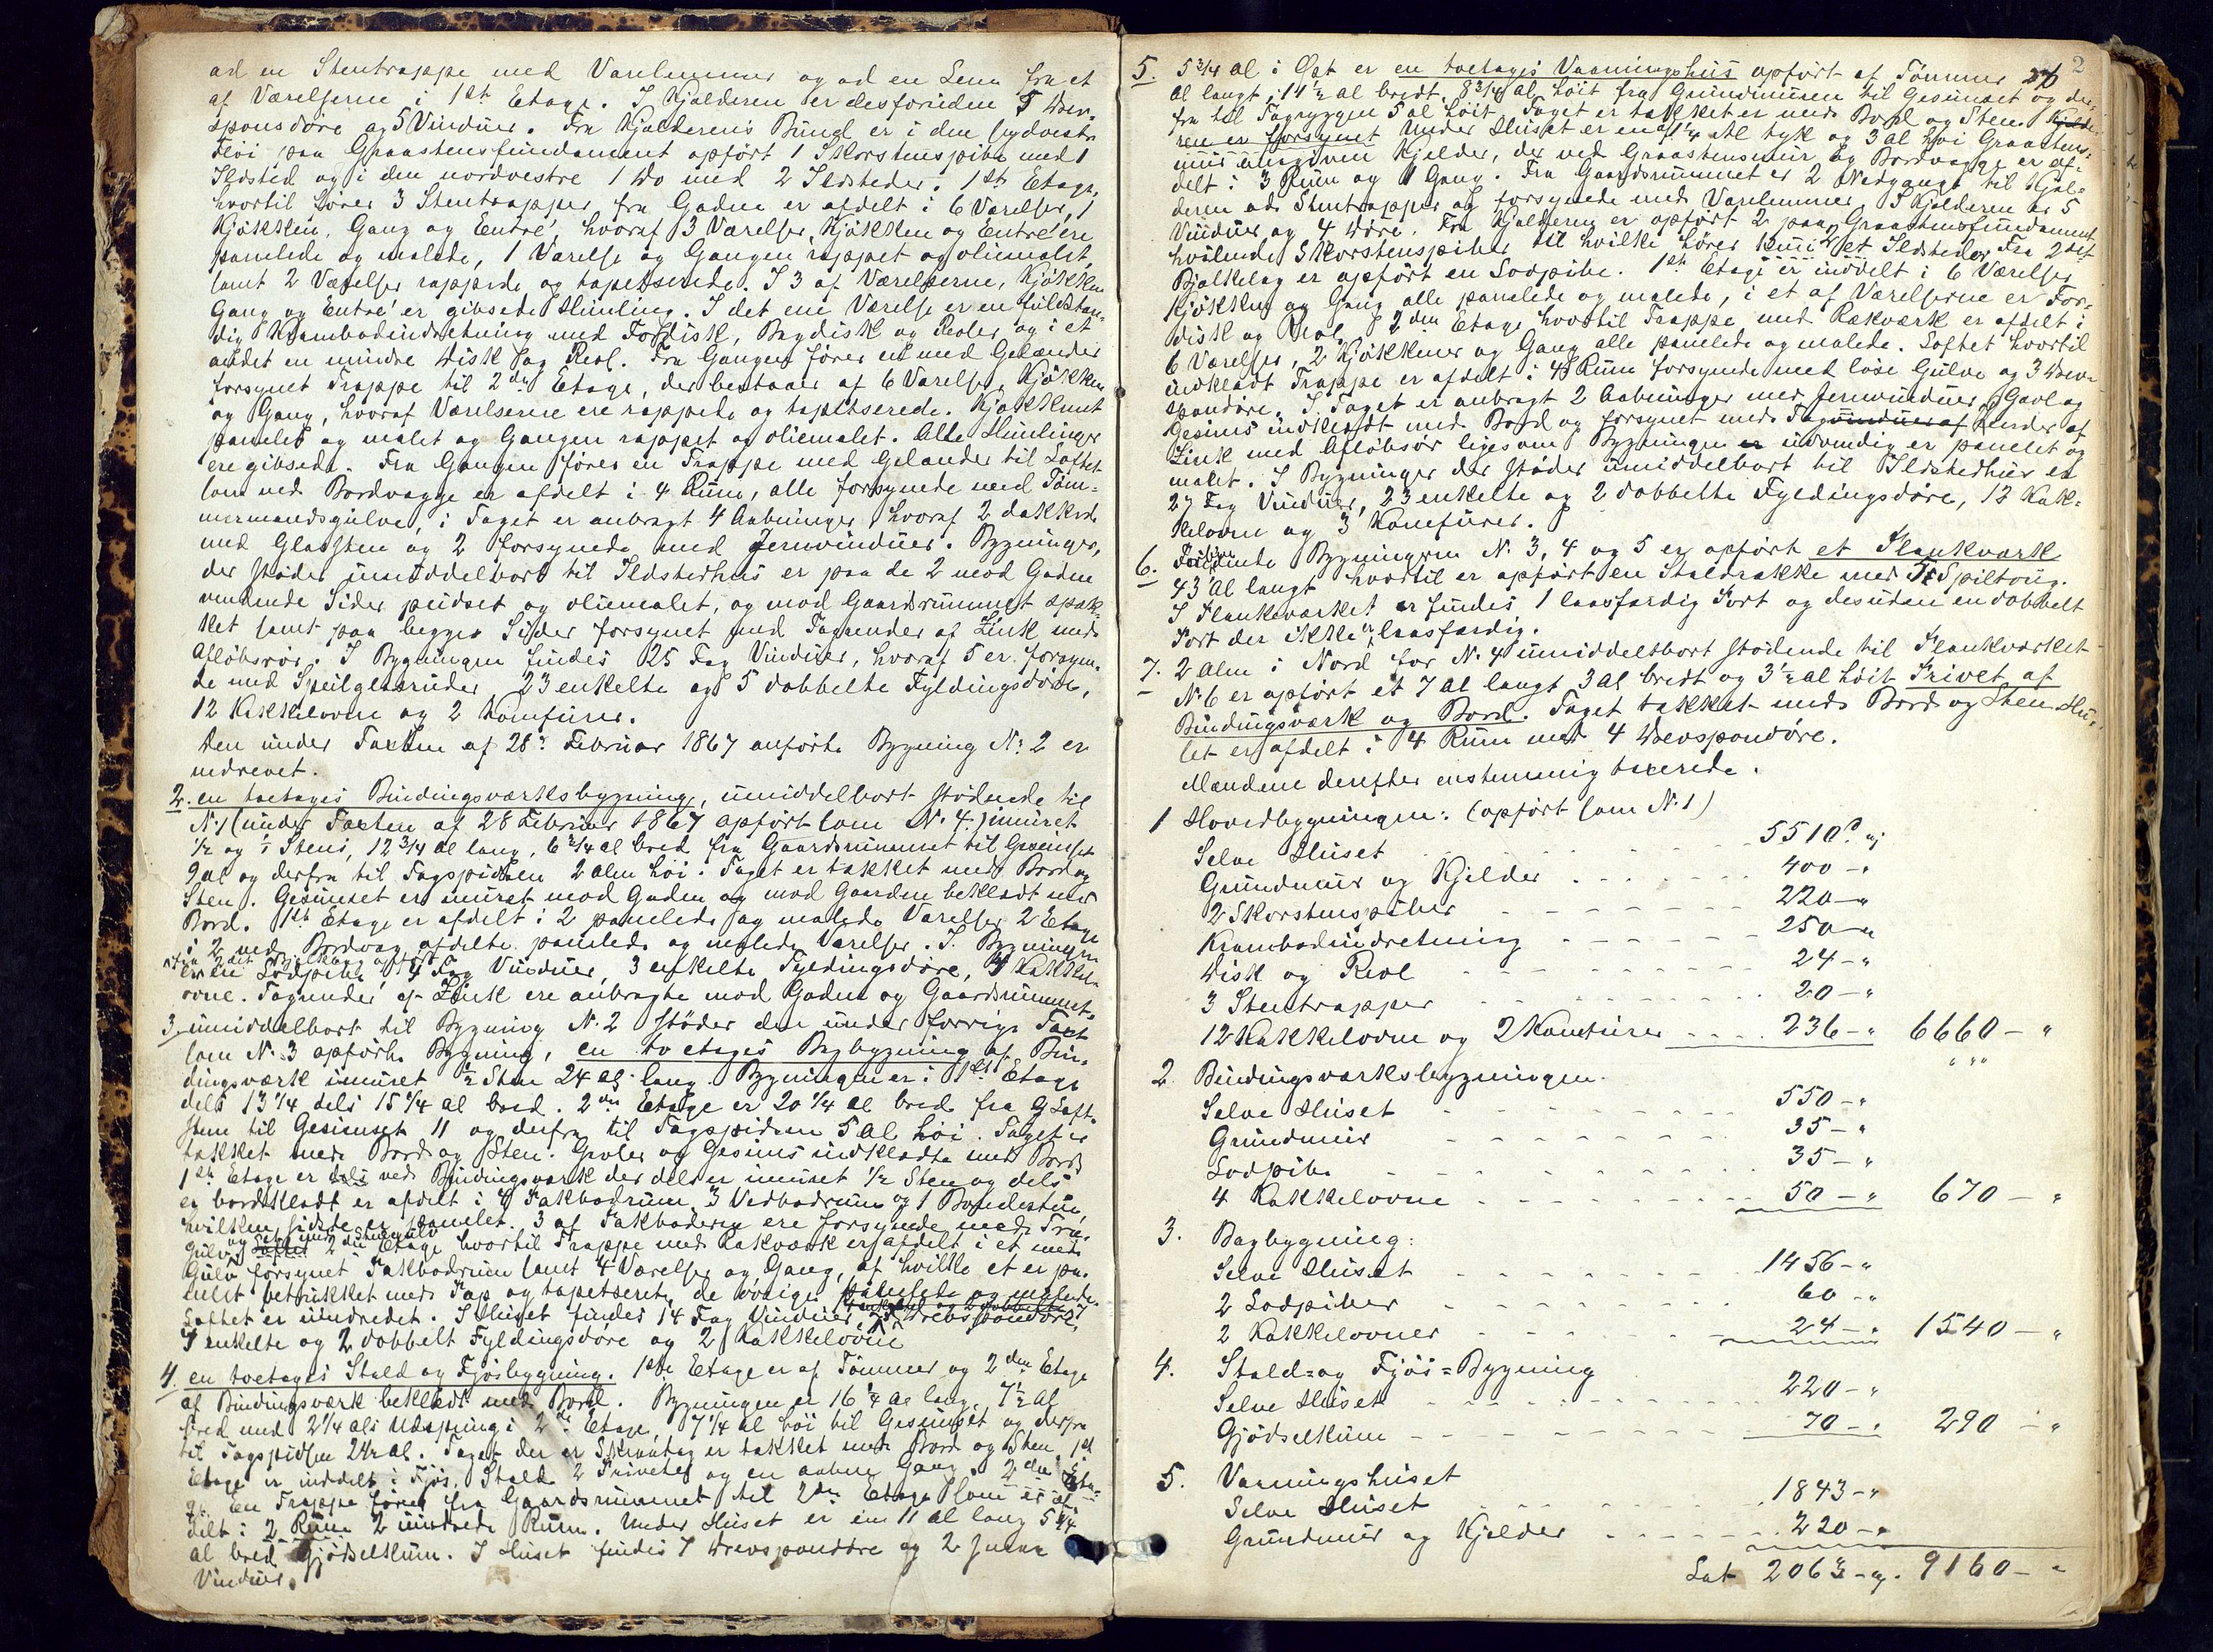 ad en Stentrappe med Varelemmer og ad en Lem fra et
af Værelserne i 1ste Etage. I Kjælderen er desforuden 5 Drev-
sponsdøre og 5 Vinduer. Fra Kjælderens Bund er i den sydvestre
Fløi paa Graastensfundament opført 1 Skorstenspibe med 1
Ildsted og i den nordvestre 1 Do med 2 Ildsteder. 1ste Etage,
hvortil fører 3 Stentrapper fra Gaden er afdelt i 6 Værelser, 1
Kjøkken, Gang og Entré, hvoraf 3 Værelser, Kjøkken og Entré ere
panelede og malede, 1 Værelse og Gangen rappet og oliemalet
samt 2 Værelser rappede og tapetserede. I 3 af Værelserne, Kjøkken
Gang og Entré er gibsede Himling. I det ene Værelse er en fuldstæn-
dig Krambodindretning med Fordisk, Bagdisk og Reoler og i et
andet en mindre Disk og Reol. Fra Gangen fører en med Gelænder
forsynet Trappe til 2den Etage, der bestaaer af 6 Værelser, Kjøkken
og Gang, hvoraf Værelserne ere rappede og tapetserede. Kjøkkenet
panelet og malet og Gangen rappet og oliemalet. Alle Himlinger
ere gibsede. Fra Gangen fører en Trappe med Gelænder til Loftet
som ved Bordvægge er afdelt i 4 Rum, alle forsynede med Tøm-
mermandsgulve, i Taget er anbragt 4 Aabninger, hvoraf 2 dækkede
med Glassten og 2 forsynede med Jernvinduer. Bygningen,
der støder umiddelbart til Ildstedhus er paa de 2 mod Gaden
vendende Sider pudset og oliemalet, og mod Gaardsrummet spæk-
ket samt paa begge Sider forsynet med Tagrender af Zink med
Afløbsrør. I Bygningen findes 25 Fag Vinduer, hvoraf 5 er forsyn-
de med Speilglasruder, 23 enkelte og 5 dobbelte Fyldingsdøre,
12 Kakkelovne og 2 Komfurer.
Den under Taxten af 28de Februar 1867 anførte Bygning No 2 er
nedrevet.
2. en toetages Bindingsværksbygning, umiddelbart stødende til
No 1 (under Taxten af 28 Februar 1867 opført som No 4.) muret
1/2 og 1 Stens, 12 3/4 al lang, 6 3/4 al bred fra Gaardsrummet til Gesimset
9 al og derfra til Tagspidsen 2 alen høi. Taget er tækket med Bord og
Sten. Gesimset er muret mod Gaden og mod Gaarden beklædt med
Bord. 1ste Etage er afdelt i 2 panelede og malede Værelser 2 Etage
i 2 ved Bordvæg afdelte panelede og malede Værelser. I Bygningen
er en Lodpibe, 4 Fag Vinduer, 3 enkelte Fyldingsdøre, 4 Kakkel-
ovne. Tagrender af Zink ere anbragte mod Gaden og Gaardsrummet.
3. umiddelbart til Bygning No 2 støder den under forrige Taxt
som No 3 opførte Bygning, en toetages Bagbygning af Bin-
dingsværk imuret 1/2 Sten 24 al lang. Bygningen er i 1ste Etage
dels 13 1/4 dels 15 1/4 al bred. 2den Etage er 20 1/4 al bred fra
til Gesimset 11 og derfra til Tagspidsen 5 al høi. Taget er
tækket med Bord og Sten. Gavler og Gesims indklædte med Bord
1ste Etage er dels ved Bindingsværk der dels er imuret 1/2 Sten og dels
er bordklædt er afdelt i 4 Pakbodrum 3 Vedbodrum og 1 Bondestue,
hvilken sidste er panelet. 3 af Pakboderne ere forsynede med Træ-
gulv. 2den Etage hvortil Trappe med Rækværk er afdelt i et med
Gulv forsynet Pakbodrum samt 4 Værelser og Gang, af hvilke et er pa-
nelet betrukket med Pap og tapetseret, de øvrige panelede og malede.
Loftet er uindredet. I Huset findes 14 Fag Vinduer, Drevspondøre,
7 enkelte og 2 dobbelt Fyldingsdøre og 2 Kakkelovne
4. en toetages Stald og Fjøsbygning. 1ste Etage er af Tømmer og 2den Etage
af Bindingsværk beklædt med Bord. Bygningen er 16 1/4 al lang, 7 1/2 al
bred med 2 1/4 als Udspring i 2den Etage, 7 1/4 al høi til Gesimset og derfra
til Tagspidsen 2 1/2 al. Taget der er Skraatag er tækket med Bord og Sten. 1ste
Etage er inddelt i Fjøs, Stald 2 Priveter og en aaben Gang. 2den Eta-
ge. En Trappe fører fra Gaardsrummet til 2den Etage som er af-
delt i 2 Rum 2 uindrede Rum. Under Huset er en 11 al lang 5 3/4
al bred Gjødselkum. I Huset findes 7 Drevspondøre og 2 smaa
Vinduer.
5. 5 3/4 al i Øst er en toetages Vaaningshus opført af Tømmer 26
al langt, 14 1/2 al bredt, 8 3/4 al høit fra Grundmuren til Gesimset og der-
fra til Tagryggen 5 al høit. Taget er tækket er med Bord og Sten. Kjelde-
ren er forsynet Under Huset er en af 1 1/4 al tyk og 3 al høi Graastens-
mur omgiven Kjelder, der ved Graastensmur og Bordvægge er af-
delt i 3 Rum og 1 Gang. Fra Gaardsrummet er 2 Nedgange til Kjæl-
deren ad Stentrapper og forsynede med Varelemmer. I Kjelderen er 5
Vinduer og 4 Døre. Fra Kjelderen er opført 2 paa Graastensfundament
hvilende Skorstenspiber til hvilke hører Ildsteder. Fra 2det
Bjælkelag er opført en Lodpibe. 1ste Etage er inddelt i 6 Værelser
Kjøkken og Gang alle panelede og malede, i et af Værelserne er For-
disk og Reol. 2den Etage hvortil Trappe med Rækværk er afdelt i
6 Værelser, 2 Kjøkkener og Gang alle panelede og malede. Loftet hvortil
indklædt Trappe er afdelt i 4 Rum forsynede med løse Gulve og 3 Drev-
spondøre. I Taget er anbragt 2 Aabninger med Jernvinduer, Gavl og
Gesims indklædt med Bord og forsynet med Tagvinduer af Render af
Zink med Afløbsrør ligesom Bygningen er udvendig er panelet og
malet. I Bygningen der støder umiddelbart til Ildstedhus er
27 Fag Vinduer, 23 enkelte og 2 dobbelte Fyldingsdøre, 12 Kak-
kelovne og 3 Komfurer.
6. Bygningerne No 3, 4 og 5 er opført et Plankværk
43 al langt hvortil er opført en Staldrække med Spiltoug.
I Plankeværket er findes 1 laasfærdig Port og desuden en dobbelt
Port der ikke er laasfærdig.
7. 2 alen i Nord for No 4 umiddelbart stødende til Plankværket
No 6 er opført et 7 al langt 3 al bredt og 3 1/2 al høit Privet af
Bindingsværk og Bord. Taget tækket med Bord og Sten. Hu-
set er afdelt i 4 Rum med 4 Drevspondøre.
Mændene derefter enstemmig taxerede.
1 Hovedbygningen: (opført som No 1)
Selve Huset 5510 "
Grundmur og Kjelder 400 - "
2 Skorstenspiber 220 - "
Krambodindretning 250 "
Disk og Reol 24 - "
3 Stentrapper 20 - "
12 Kakkelovne og 2 Komfurer 236 - " 6660 - "
2 Bindingsværksbygningen.
Selve Huset 550 - "
Grundmur 35 - "
Lodpibe 35 - "
4 Kakkelovne 50 - " 670 - "
3. Bagbygning:
Selve Huset 1456 - "
2 Lodpiber 60 - "
2 Kakkelovner 24 - " 1540 - "
4. Stald= og Fjøs=Bygning
Selve Huset 220 - "
Gjødselkum 70 - " 290 - "
5. Vaaningshuset
Selve Huset 1843 - "
Grundmur og Kjelder 220 - "
Lat 2063 - " 9160 - "